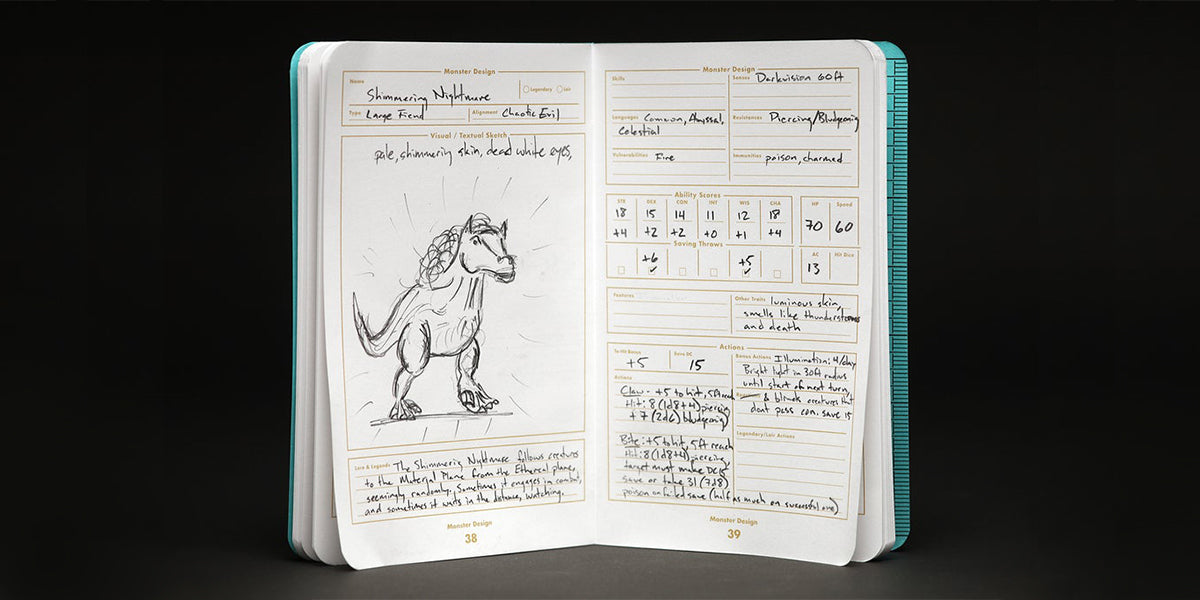 Monster Design
Name
Shimmering Nightmare
Legendary Lair
Type Large Fiend
Alignment Chaotic Evil
Visual / Textual Sketch
pale, shimmering skin, dead white eyes,
Lore & Legends The Shimmering Nightmare follows creatures
to the Material Plane from the Ethereal plane,
seemingly randomly. Sometimes it engages in combat,
and sometimes it waits in the distance, watching.
Monster Design
38
Monster Design
Skills
Senses Darkvision 60ft
Languages Common, Abyssal,
Celestial
Resistances Piercing/Bludgeoning
Vulnerabilities Fire
Immunities poison, charmed
Ability Scores
STR DEX CON INT WIS CHA
18 15 14 11 12 18
+4 +2 +2 +0 +1 +4
HP Speed
70 60
Saving Throws
+6 +5
AC Hit Dice
13
Features
Other Traits luminous skin,
smells like thunderstorms
and death
Actions
To Hit Bonus
+5
Save DC
15
Actions
Claw - +5 to hit, 5ft reach
Hit: 8 (1d8+4) piercing
+ 7 (2d6) bludgeoning
Bite: +5 to hit, 5ft reach
Hit: 8 (1d8+4) piercing,
target must make DC15
save or take 31 (7d8)
poison on failed save (half as much on successful one)
Bonus Actions Illumination: 4/day
Bright light in 30ft radius
until start of next turn,
& blinds creatures that
dont pass con. save 15
Legendary/Lair Actions
Monster Design
39